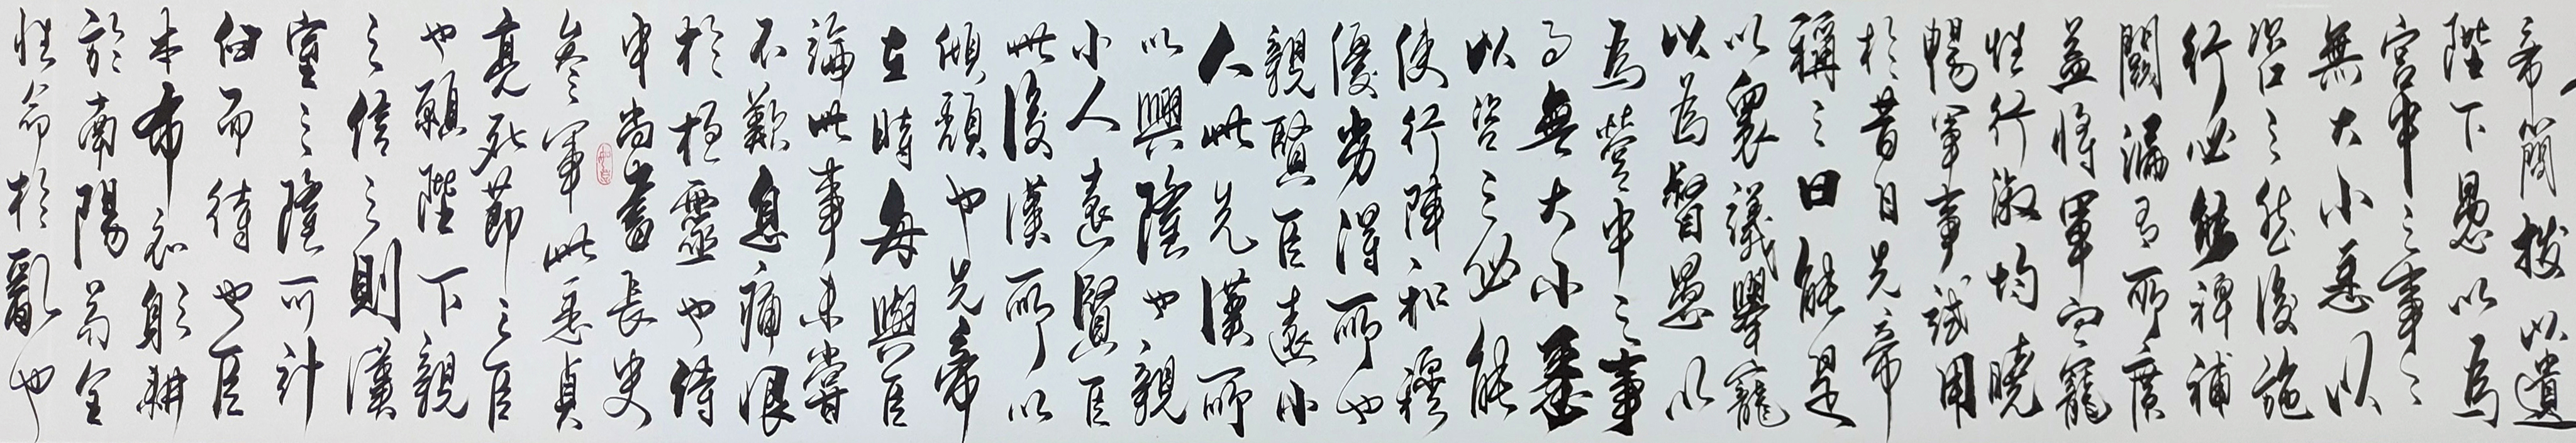 帝簡拔以遺
陛下愚以為
宮中之事之
無大小悉以
咨之然後施
行必能裨補
闕漏有所廣
益將軍向寵
性行淑均曉
暢軍事試用
於昔日先帝
稱之曰能是
以眾議舉寵
以為督愚以
為營中之事
事無大小悉
以咨之必能
使行陣和穆
優劣得所也
親賢臣遠小
人此先漢所
以興隆也親
小人遠賢臣
此後漢所以
傾頹也先帝
在時每與臣
論此事未嘗
不歎息痛恨
於桓靈也侍
中尚書長史
參軍此悉貞
亮死節之臣
也願陛下親
之信之則漢
室之隆可計
但而待也臣
本布衣躬耕
於南陽苟全
性命於亂也